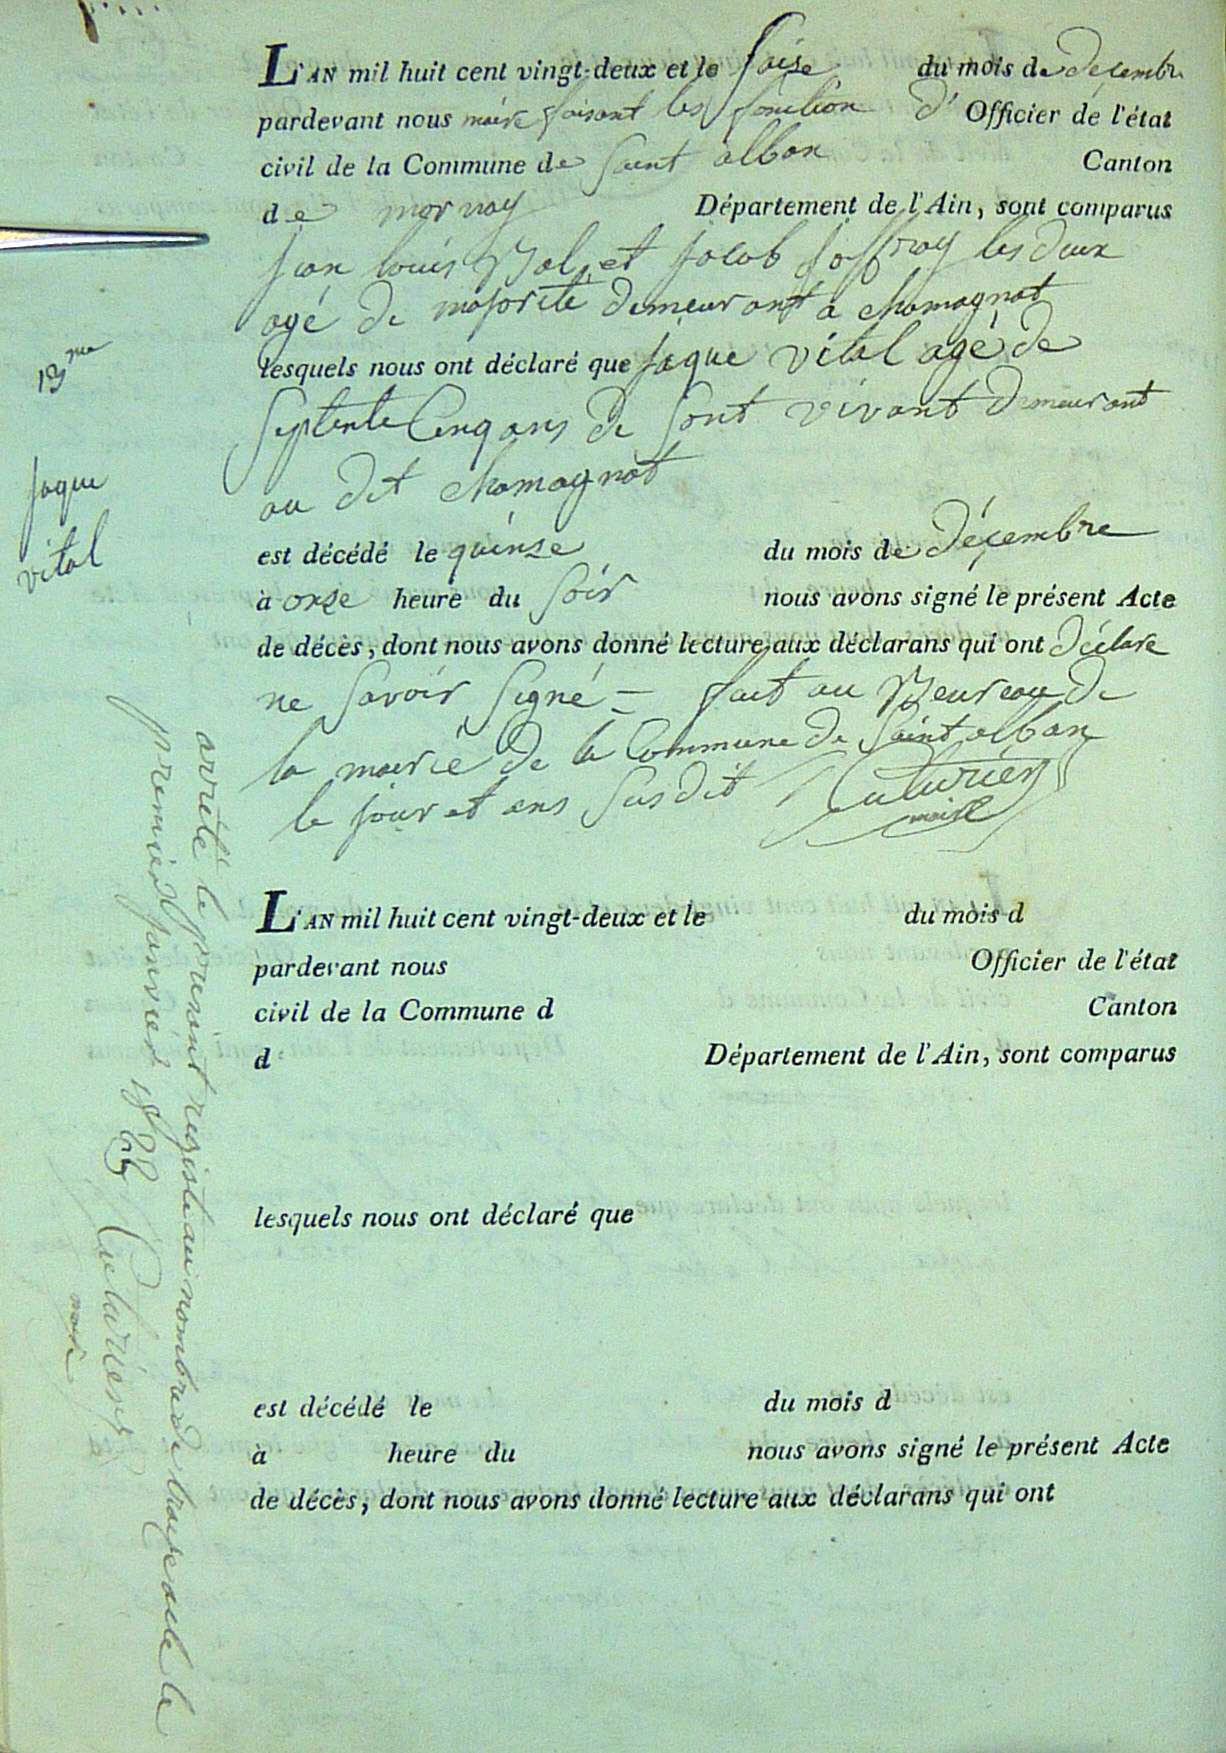 L'AN mil huit cent vingt-deux et le saise du mois de décembre
pardevant nous maire faisant les fonction d' Officier de l'état
civil de la Commune de saint alban Canton
de mornay Département de l'Ain, sont comparus
jean louis et jacob joffray les deux
agé de majorité demeurant a chamagnat
lesquels nous ont déclaré que jaque vital agé de
septente cenq ans de sont vivant demeurant
au dit chamagnat
est décédé le quinse du mois de décembre
à onze heure du soir nous avons signé le présent Acte
de décès, dont nous avons donné lecture aux déclarans qui ont déclare
ne savoir signé - fait au Beureau de
la mairie de la commune de saint alban
le jour et ans susdit Cuturier
maire
13me
jaque
vital
arrêté le present registe au nombre de traise acte le
premier janvier 1823 Cuturier
maire
L'AN mil huit cent vingt-deux et le du mois d
pardevant nous Officier de l'état
civil de la Commune d Canton
d Département de l'Ain, sont comparus
lesquels nous ont déclaré que
est décédé le du mois d
à heure du nous avons signé le présent Acte
de décès, dont nous avons donné lecture aux déclarans qui ont